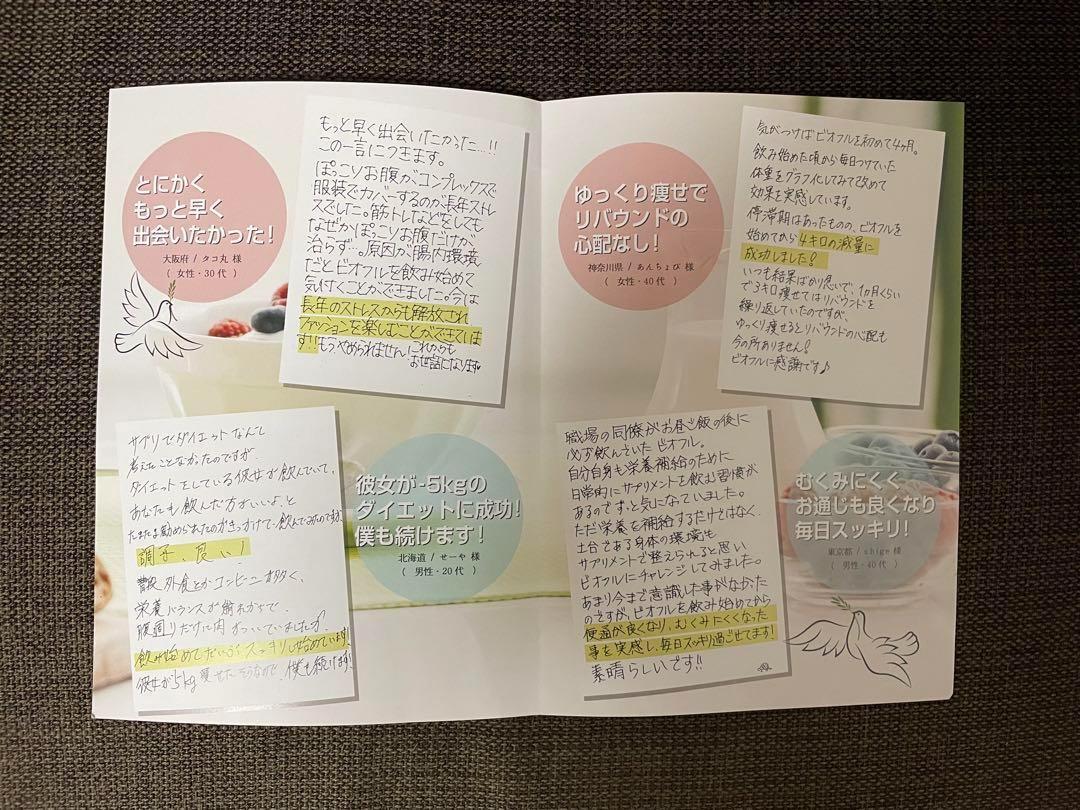 とにかく
もっと早く
出会いたかった!
大阪府 / タコ丸 様
( 女性・30代 )
もっと早く出会いたかった…!!
この一言につきます。
ぽっこりお腹がコンプレックスで
服装でカバーするのが長年ストレ
スでした。筋トレなどをしても
なぜかぽっこりお腹だけが
治らず…。原因が腸内環境
だとビオフルを飲み始めて
気付くことができました。今は
長年のストレスからも解放され
ファッションを楽しむことができていま
す!!もうやめられません。これからも
お世話になります♥
サプリでダイエットなんて
考えたことなかったのですが
ダイエットをしている彼女が飲んでいて、
あなたも飲んだ方がいいよ、と
たまたま勧められたのがきっかけで、飲んでみたのですが
調子、良い!
普段 外食とかコンビニが多く、
栄養バランスが崩れがちで、
腹回りだけに肉がついていましたが、
飲み始めてだいぶスッキリし始めています!
彼女が5kg痩せたそうなので、僕も続けます!
彼女が-5kgの
ダイエットに成功!
僕も続けます!
北海道 / せーや 様
( 男性・20代 )
ゆっくり痩せで
リバウンドの
心配なし!
神奈川県 / あんちょび 様
( 女性・40代 )
気がつけばビオフルを初めて4ヶ月。
飲み始めた頃から毎日つけていた
体重をグラフ化してみて改めて
効果を実感しています。
停滞期はあったものの、ビオフルを
始めてから4キロの減量に
成功しました!
いつも結果ばかり急いで、1カ月くらい
で3キロ痩せてはリバウンドを
繰り返していたのですが、
ゆっくり痩せるとリバウンドの心配も
今の所ありません!
ビオフルに感謝です♪
職場の同僚がお昼ご飯の後に
必ず飲んでいたビオフル。
自分自身も栄養補給のために
日常的にサプリメントを飲む習慣が
あるのでずっと気になっていました。
ただ栄養を補給するだけではなく
土台である身体の環境も
サプリメントで整えられると思い
ビオフルにチャレンジしてみました。
あまり今まで意識した事がなかった
のですが、ビオフルを飲み始めてから
便通が良くなり、むくみにくくなった
事を実感し、毎日スッキリ過ごせてます!
素晴らしいです!!
むくみにくく
お通じも良くなり
毎日スッキリ!
東京都 / shige 様
( 男性・40代 )